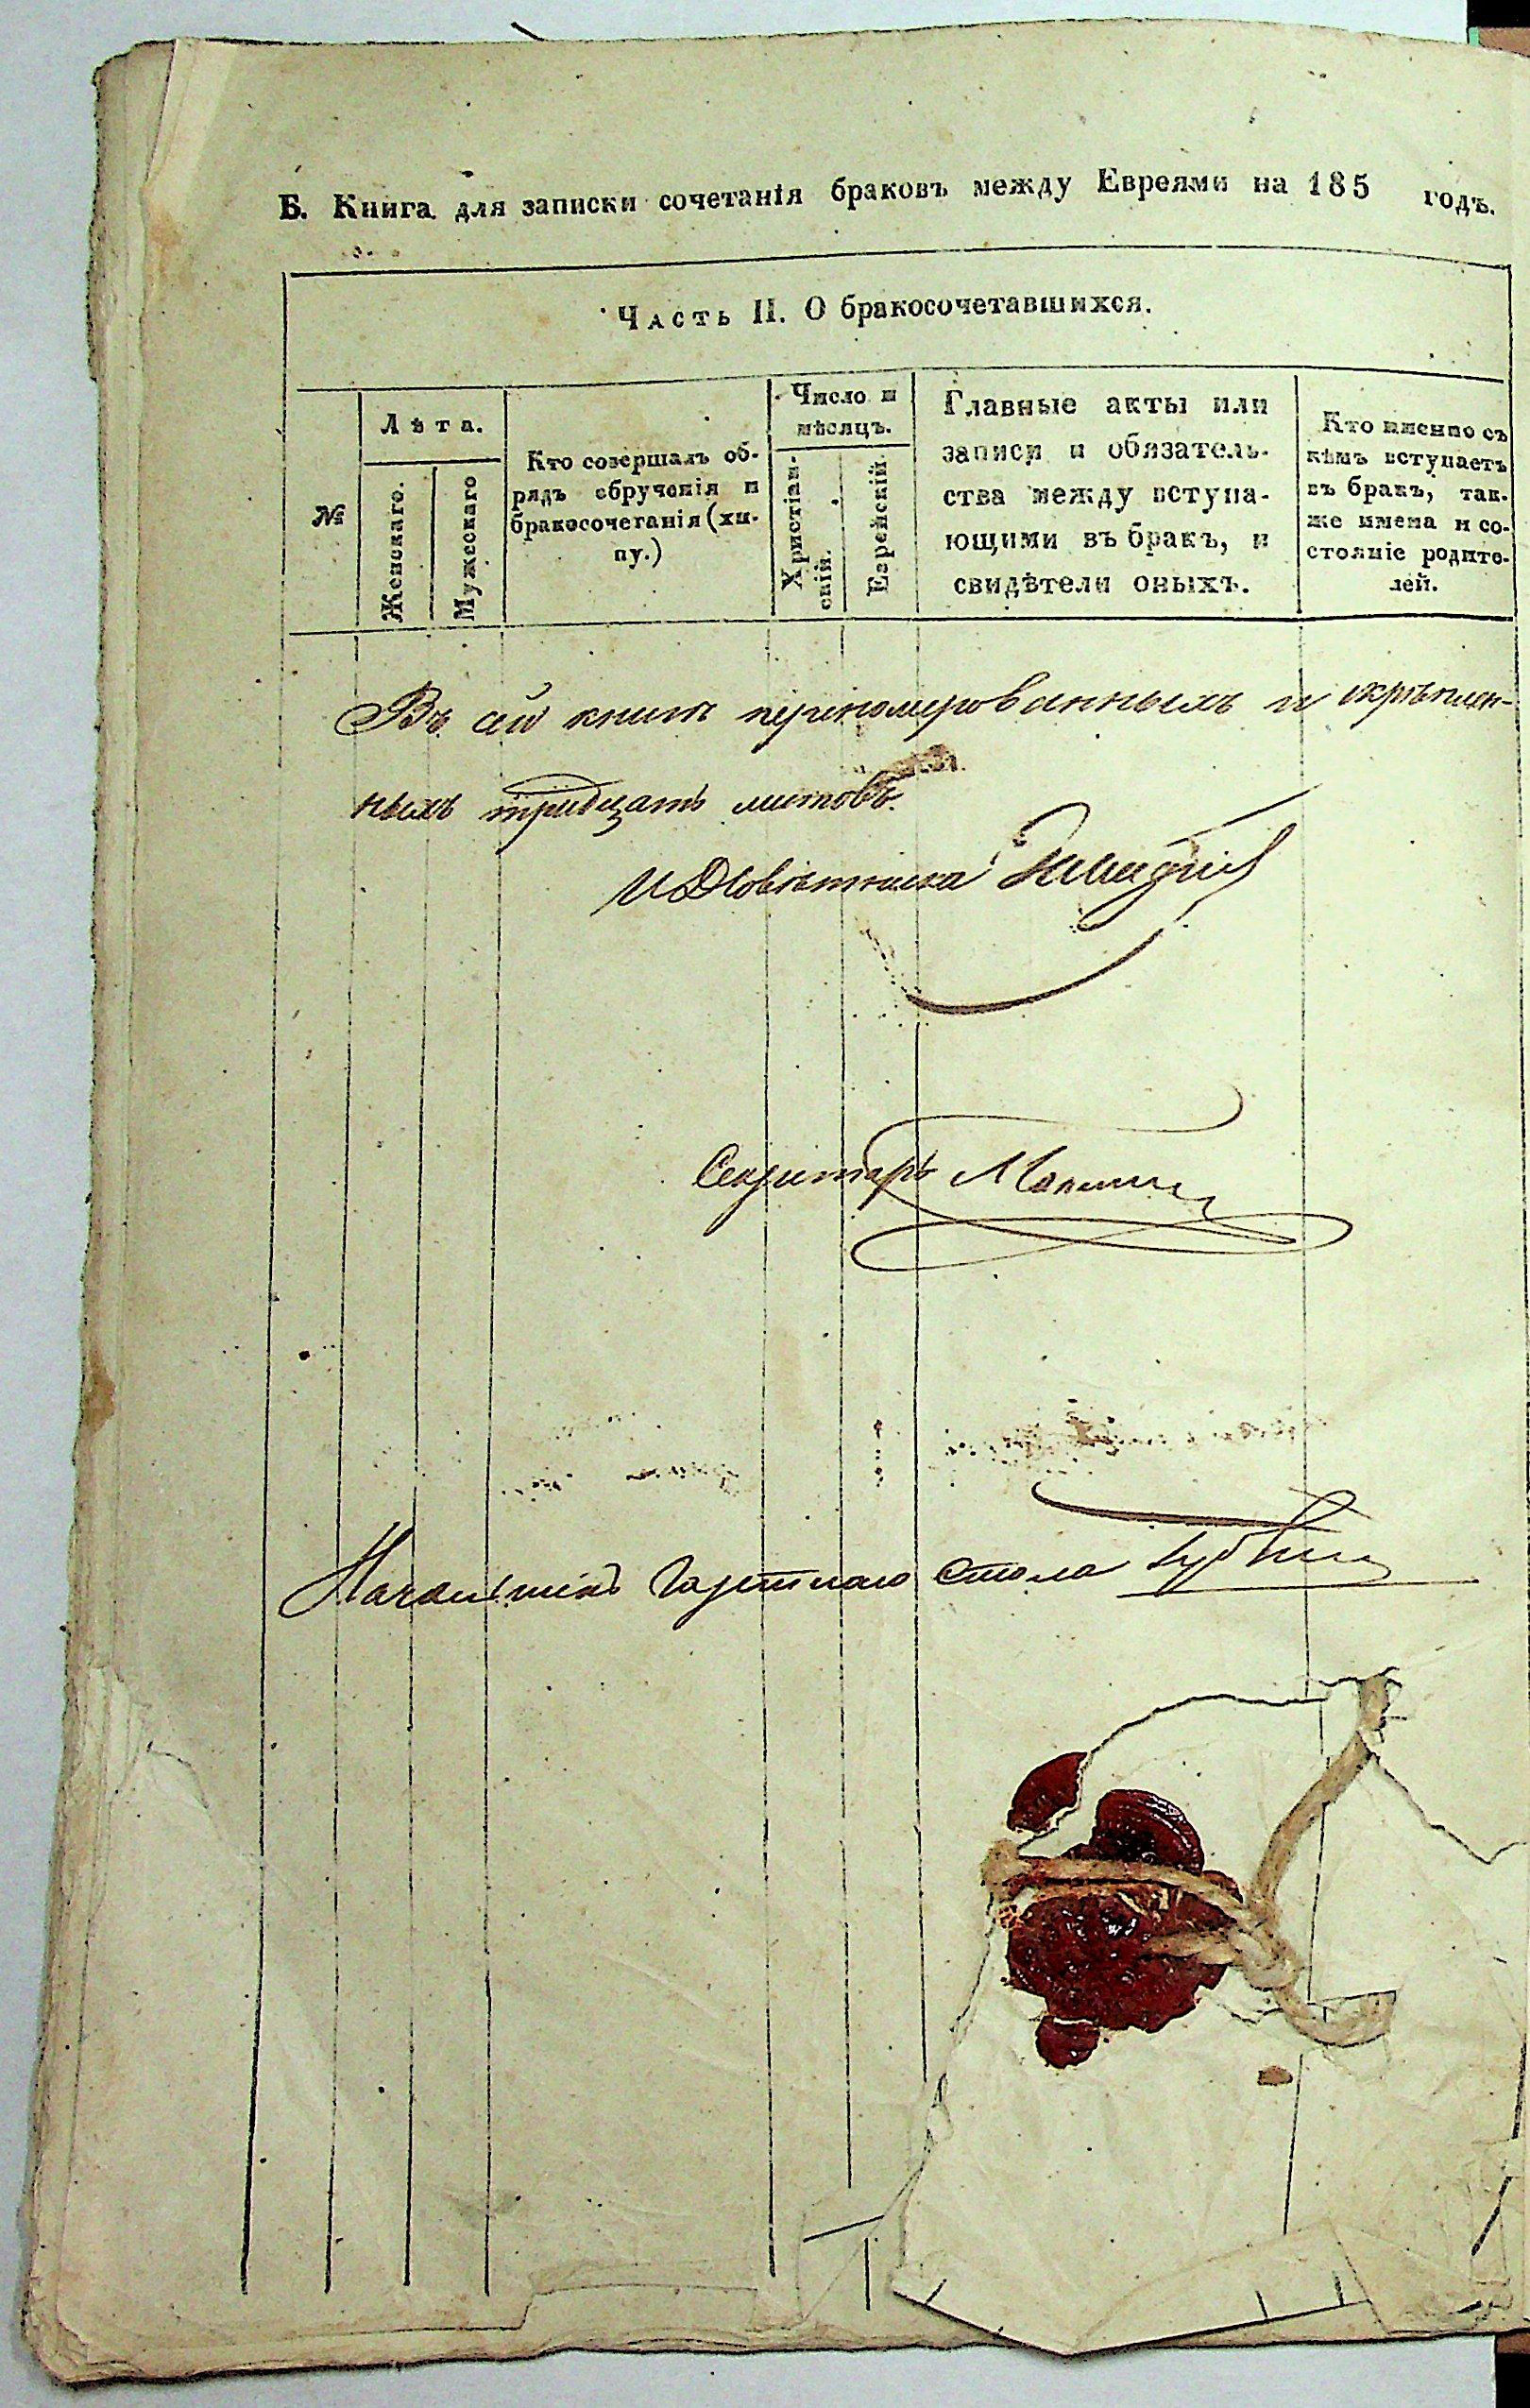 Б. Книга для записки сочетанія браковъ между Евреями на 185 годъ.
Часть II. О бракосочетавшихся.
№
Лѣта.
Женскаго.
Мужескаго
Кто совершалъ об-
рядъ обрученія и
бракосочетанія (хи-
пу.)
Число и
мѣсяцъ.
Христіан-
скій.
Еврейскій.
Главные акты или
записи и обязатель-
ства между вступа-
ющими въ бракъ, и
свидѣтели оныхъ.
Кто именно съ
кѣмъ вступаетъ
въ бракъ, так-
же имена и со-
стояніе родите-
лей.
Въ сей книгѣ перенумерованныхъ и скрѣплен-
ныхъ тридцать листовъ.
И Д Совѣтника
Секретарь
Начальникъ Газетнаго Стола